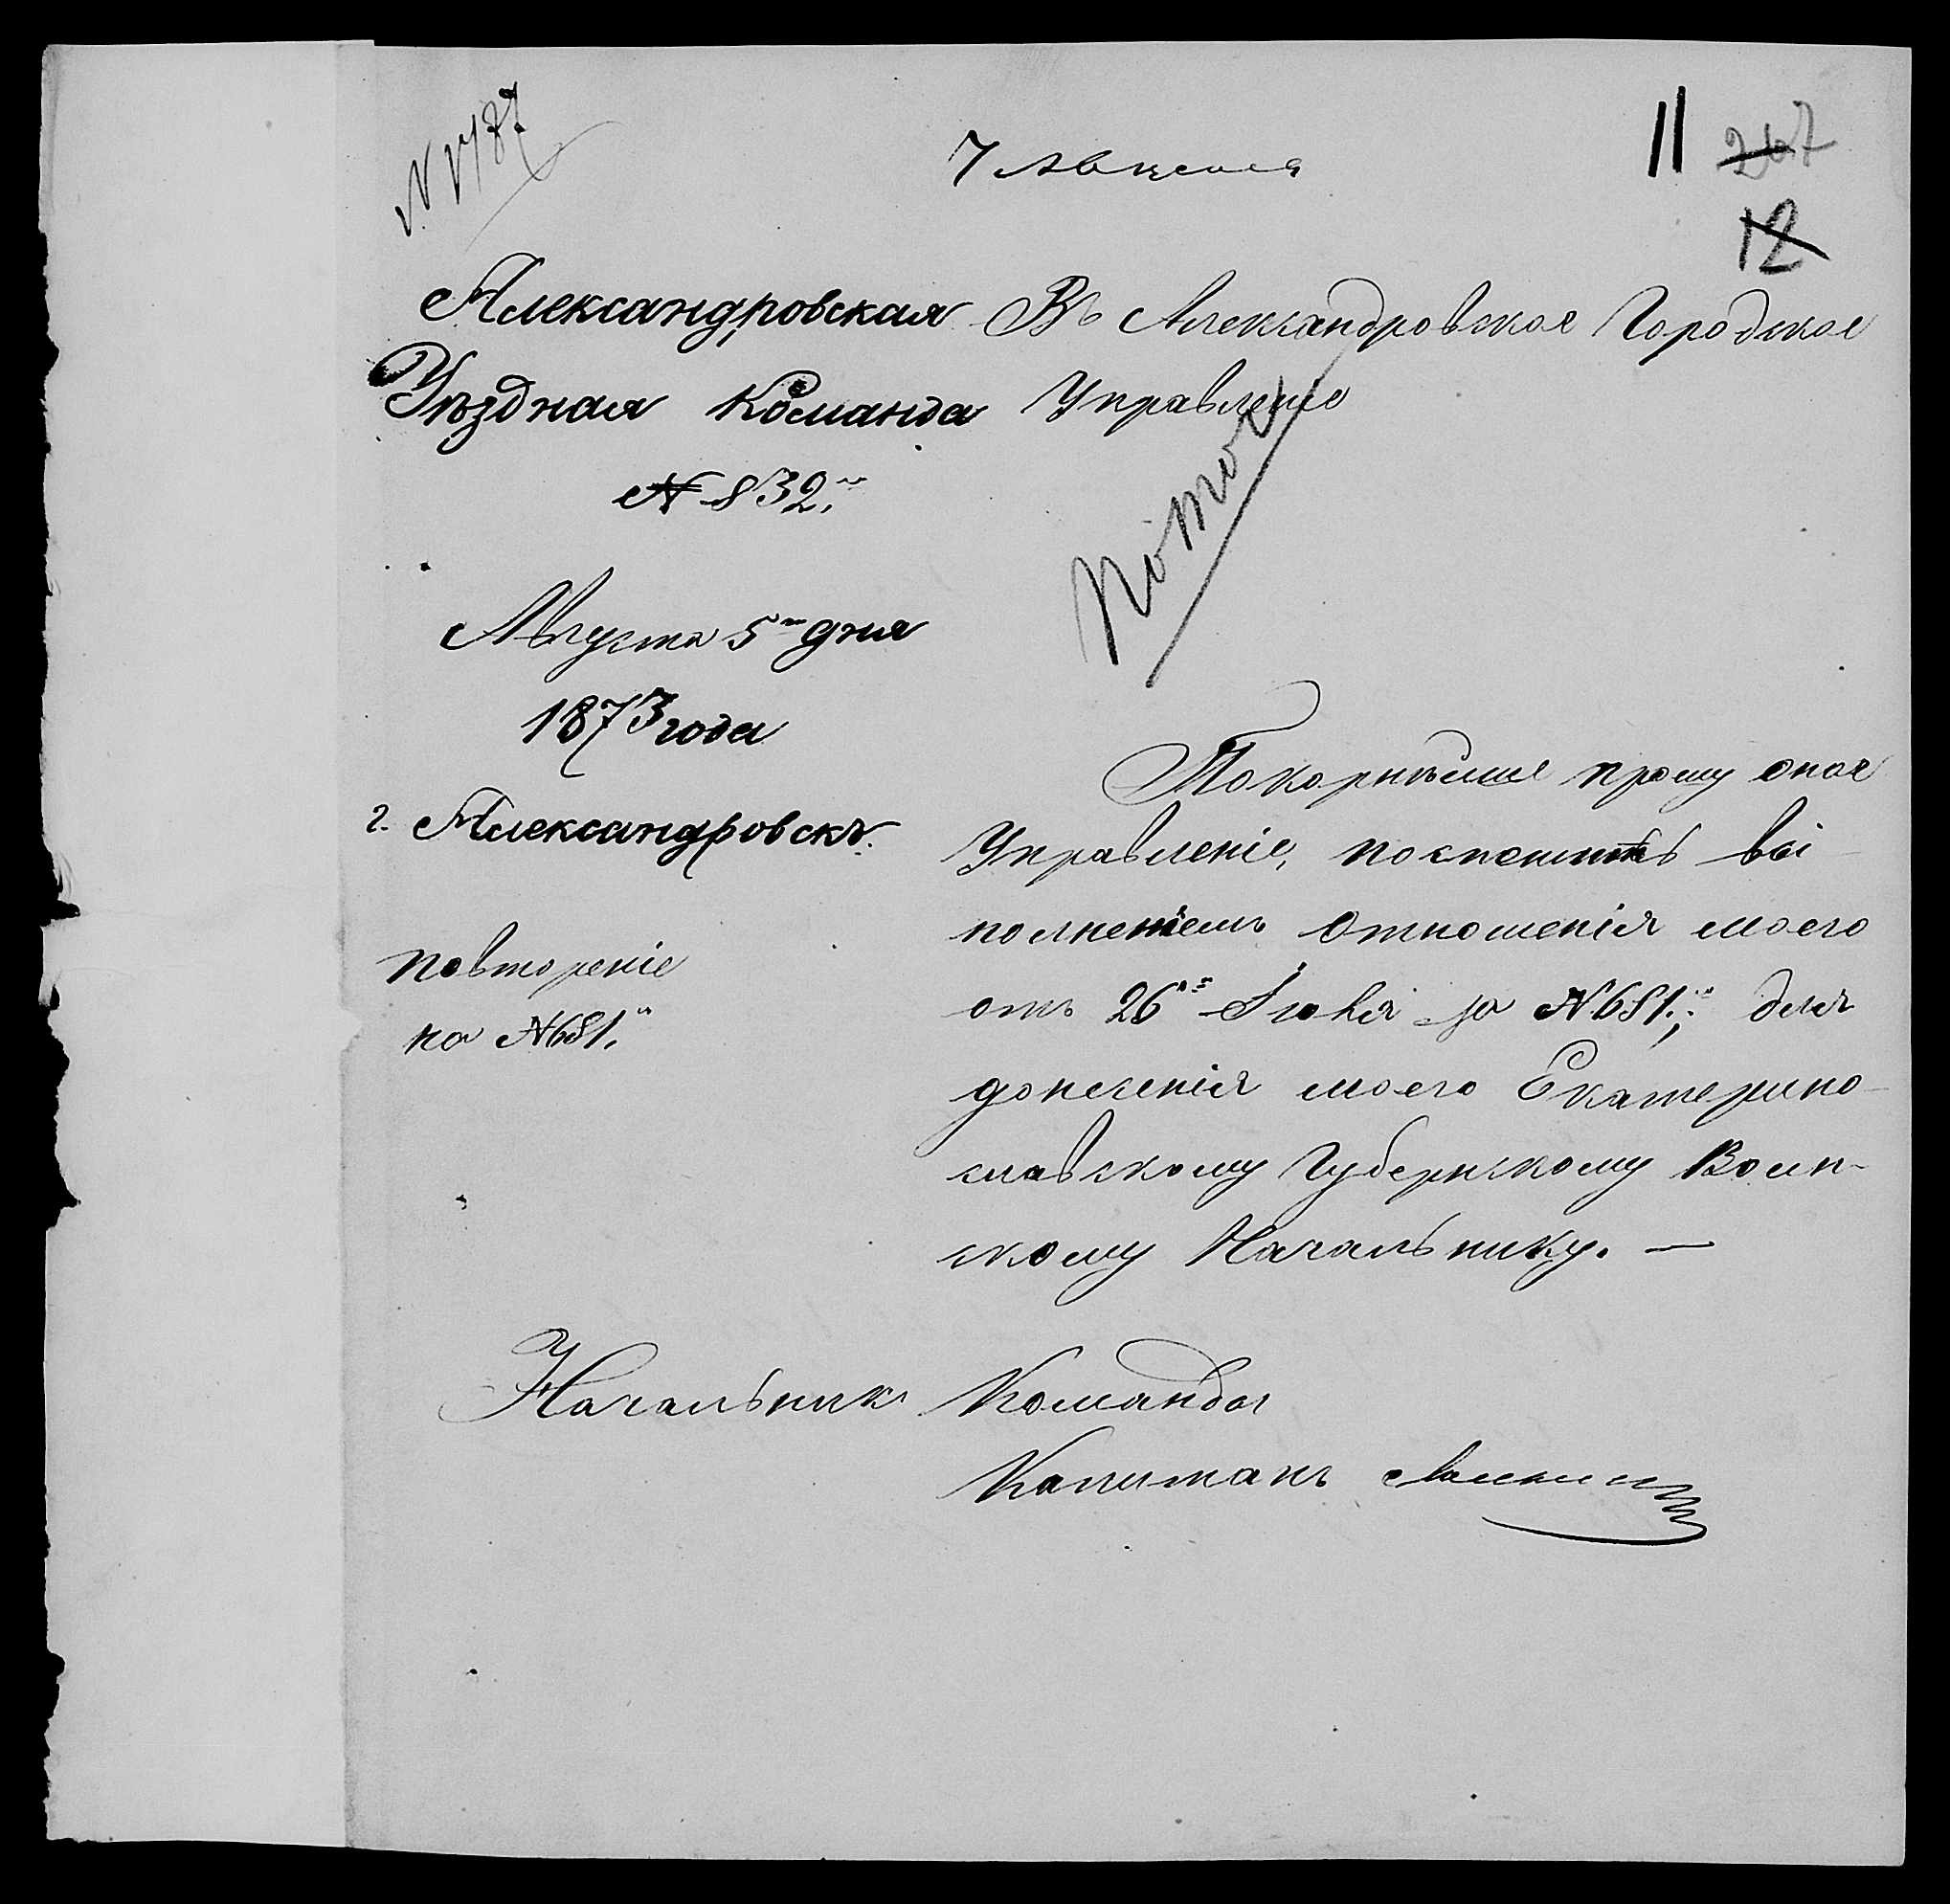 7 Августа
11
267
12
Александровская
Уѣздная Команда
№ 832.
Августа 5 дня
1873 года
г. Александровскъ.
повтореніе
на №681.
Въ Александровское Городское
Управленіе
Покорнѣйше прошу оное
Управленіе, поспешить вы
полненіемъ отношенія моего
отъ 26го Іюня за №681., для
донесенія моего Екатерино-
славскому Губернскому Воин-
скому Начальнику. —
Начальникъ Команды
Капитанъ